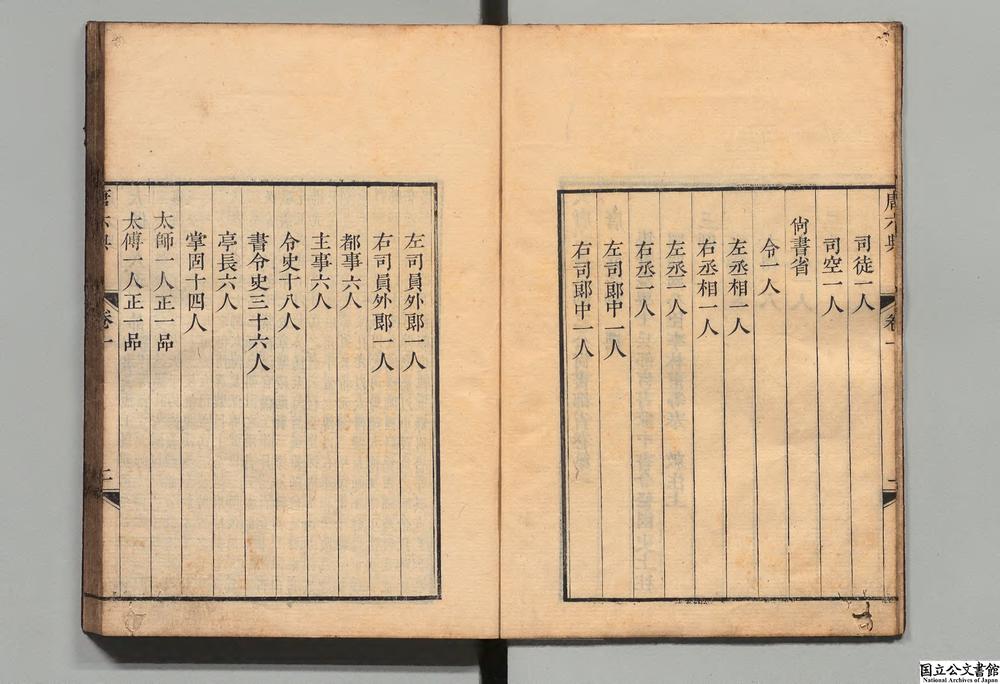 唐六典 卷一
司徒一人
司空一人
尙書省
令一人
左丞相一人
右丞相一人
左丞一人
右丞一人
左司郎中一人
右司郎中一人
左司員外郎一人
右司員外郎一人
都事六人
主事六人
令史十八人
書令史三十六人
亭長六人
掌固十四人
太師一人正一品
太傅一人正一品
唐六典 卷一 二
国立公文書館
National Archives of Japan